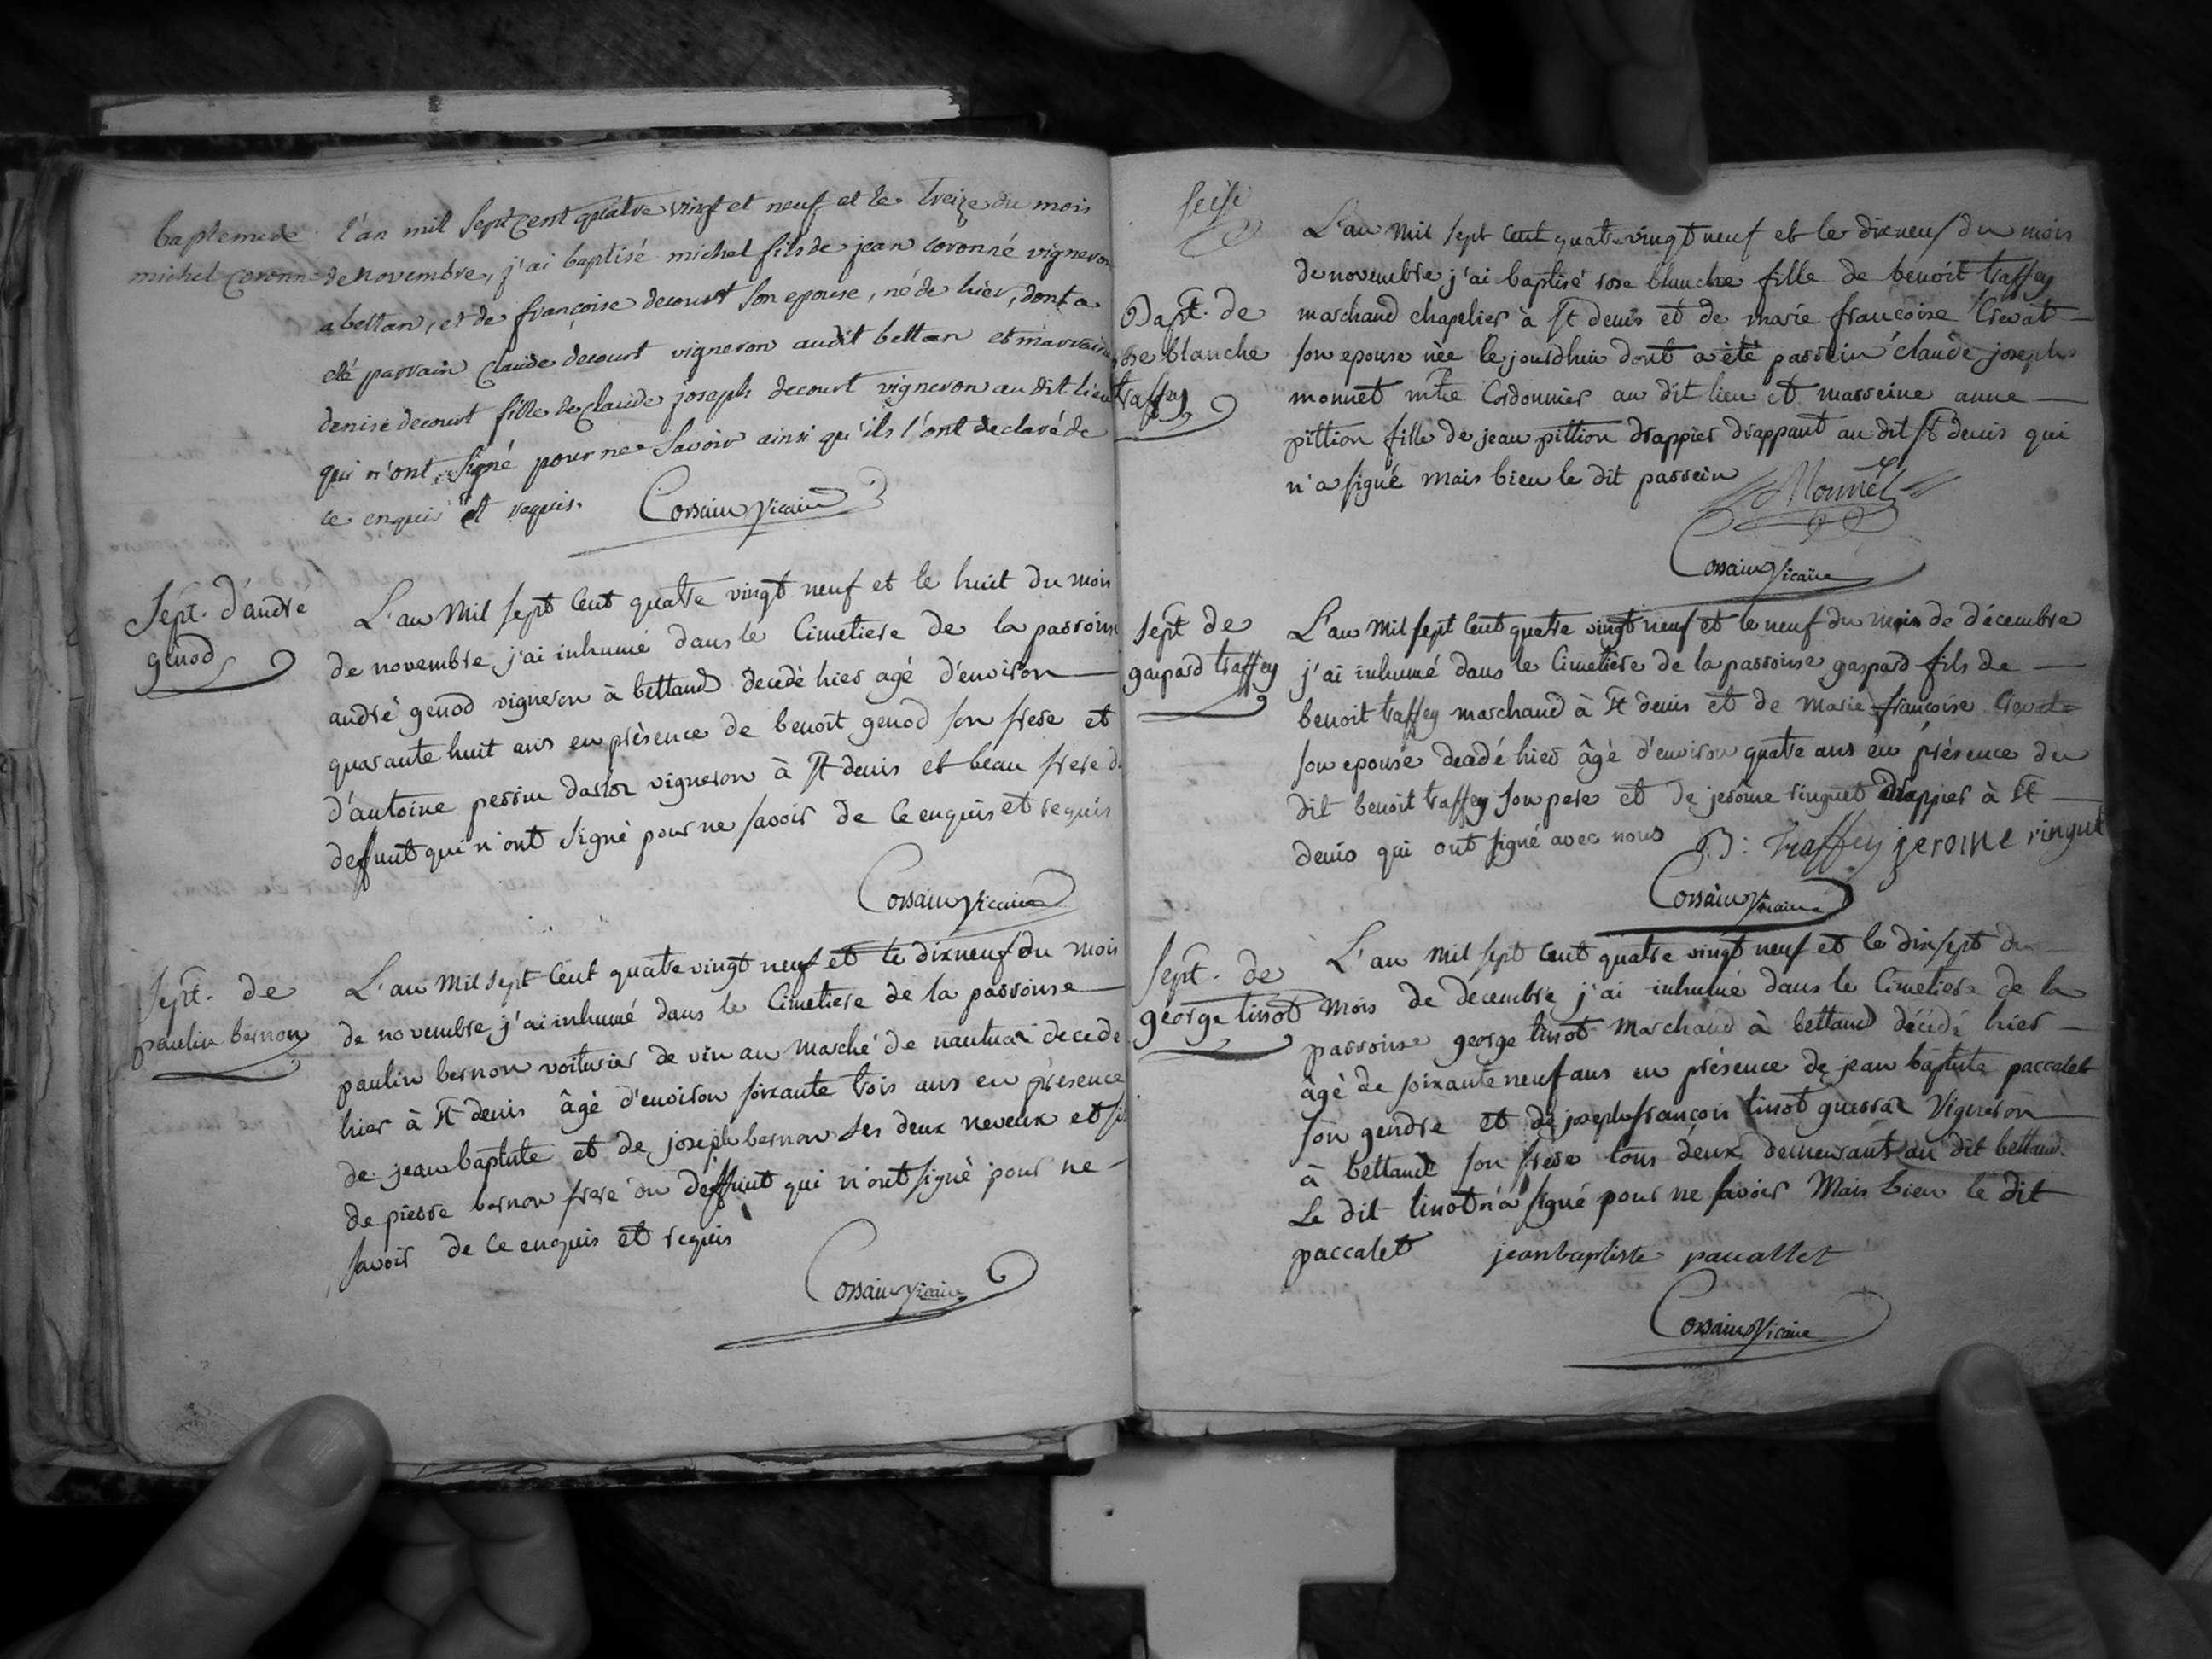 baptemede
michel Coronne
l'an mil Sept Cent quatre vingt et neuf et le treize du mois
de Novembre, j'ai baptisé michel fils de jean Coronné vigneron
a bettan, et de françoise decourt Son epouse, né de hier, dont a
eté parrain Claude decourt vigneron audit bettan et marraine
denise decourt fille de Claude joseph decourt vigneron au dit lieu
qui n'ont signé pour ne Savoir ainsi qu'ils l'ont declaré de
ce enquis et requis.
Corsain Vicaire
Sept. d'andré
genod
L'an Mil sept Cent quatre vingt neuf et le huit du mois
de novembre j'ai inhumé dans le Cimetiere de la parroisse
andré genod vigneron à bettand decedé hier agé d'environ
quarante huit ans en présence de benoit genod son frere et
d'antoine perrin vigneron à St denis et beau frere du
deffunt qui n'ont Signé pour ne savoir de Ce enquis et requis
Corsain Vicaire
Sept. de
paulin bernon
L'an Mil Sept Cent quatre vingt neuf et le dixneuf du mois
de novembre j'ai inhumé dans le Cimetiere de la parroisse
paulin bernon voiturier de vin au marché de nantua decede
hier à St denis âgé d'environ soixante trois ans en présence
de jean baptiste et de joseph bernon Ses deux neveux et
de pierre bernon frere du deffunt qui n'ont signé pour ne
savoir de Ce enquis et requis
Corsain Vicaire
seise
Bapt. de
rose blanche
traffey
L'an Mil sept Cent quatre vingt neuf et le dixneuf du mois
de novembre j'ai baptisé rose blanche fille de benoit traffey
marchand chapelier à St denis et de marie françoise Crevat
son epouse née le jourdhui dont a été parrein claude joseph
monnet mtre Cordonnier au dit lieu et marreine anne
pittion fille de jean pittion drappier drappant au dit St denis qui
n'a signé mais bien le dit parrein
Monnet
Corsain Vicaire
Sept de
gaspard traffey
L'an Mil sept Cent quatre vingt neuf et le neuf du mois de décembre
j'ai inhumé dans le Cimetiere de la parroisse gaspard fils de
benoit traffey marchand à St denis et de Marie françoise Crevat
son epouse decedé hier âgé d'environ quatre ans en présence du
dit benoit traffey Son pere et de jerôme ringuet drappier à St
denis qui ont signé avec nous B: traffey jerome ringuet
Corsain Vicaire
Sept. de
george tissot
L'an Mil sept Cent quatre vingt neuf et le dixsept du
Mois de décembre j'ai inhumé dans le Cimetiere de la
parroisse george tissot Marchand à bettand décédé hier
âgé de soixante neuf ans en présence de jean baptiste paccalet
son gendre et de joseph françois tissot Vigneron
à bettand son frere tous deux demeurants au dit bettand
Le dit tissot n'a signé pour ne savoir Mais bien le dit
paccalet jeanbaptiste pacallet
Corsain Vicaire